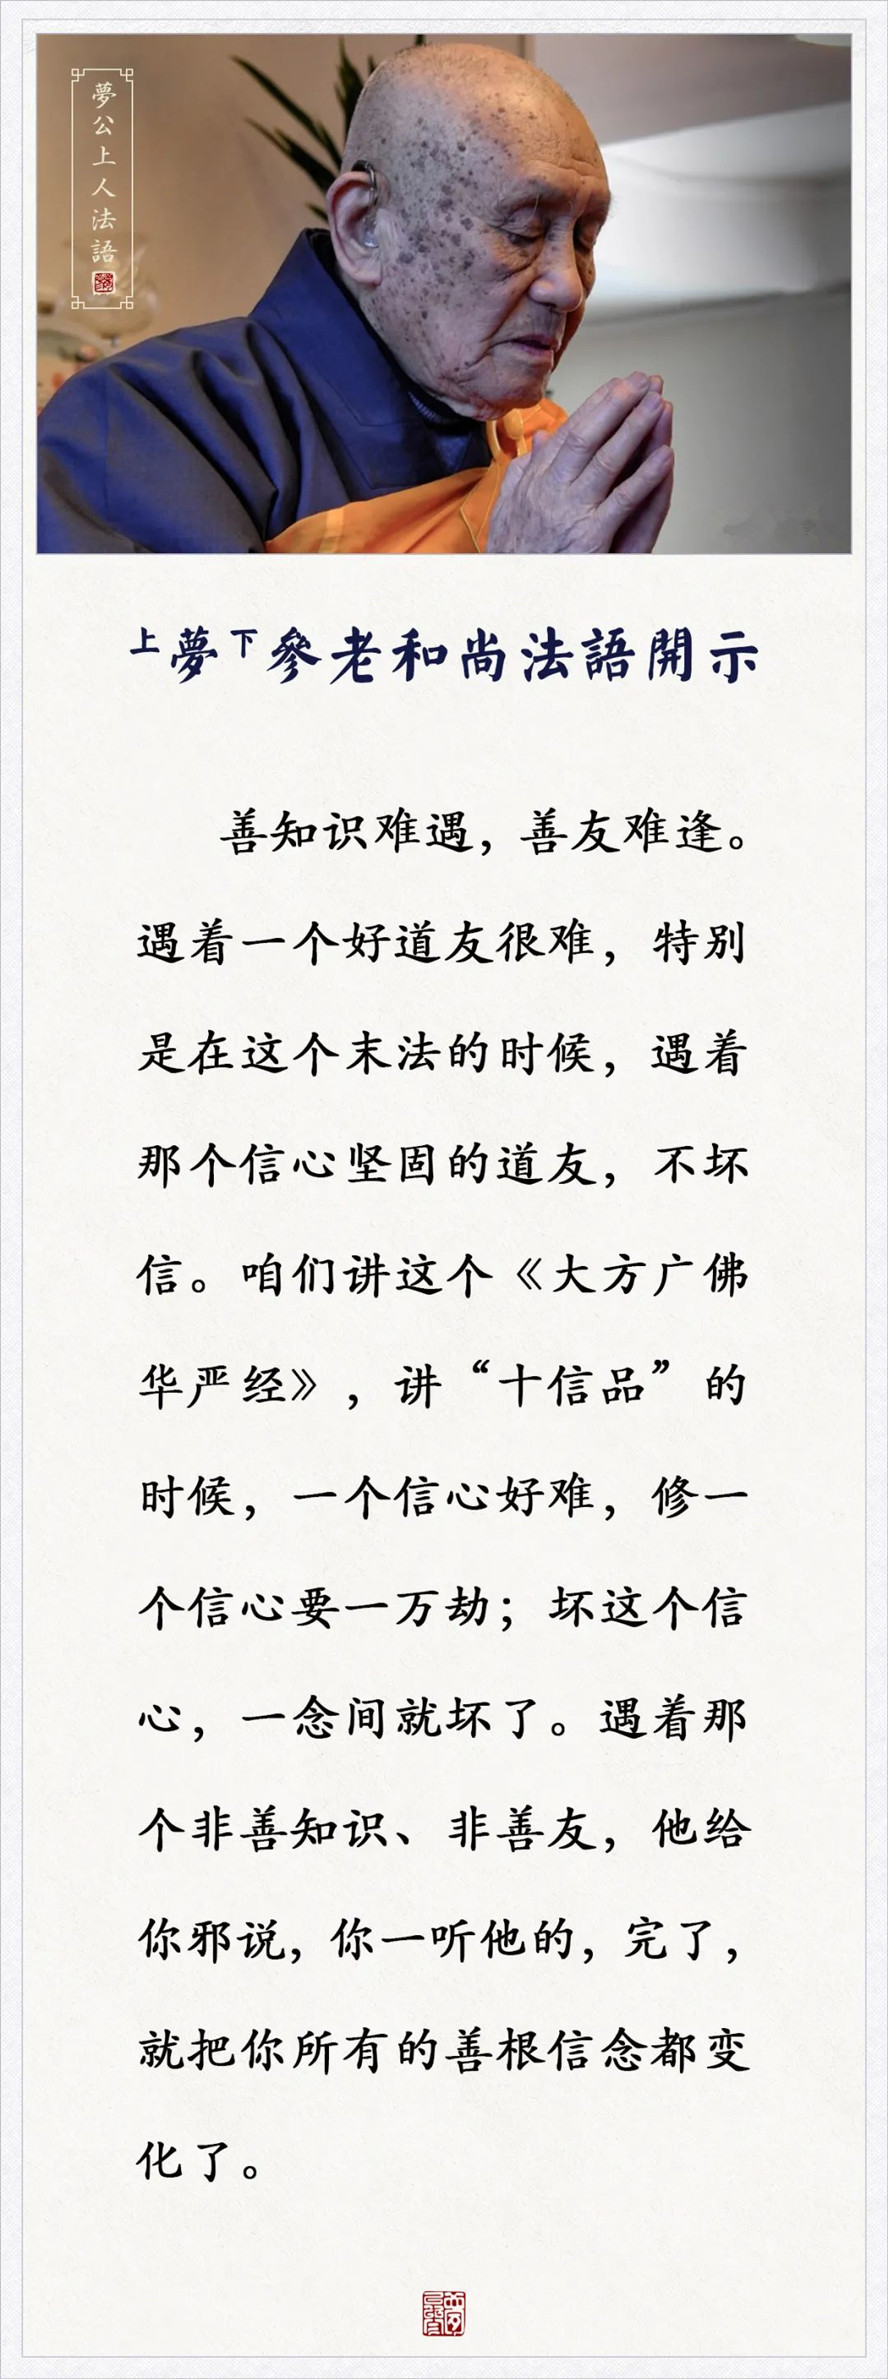 夢公上人法語
上夢下參老和尚法語開示
善知识难遇，善友难逢。
遇着一个好道友很难，特别
是在这个末法的时候，遇着
那个信心坚固的道友，不坏
信。咱们讲这个《大方广佛
华严经》，讲“十信品”的
时候，一个信心好难，修一
个信心要一万劫；坏这个信
心，一念间就坏了。遇着那
个非善知识、非善友，他给
你邪说，你一听他的，完了，
就把你所有的善根信念都变
化了。